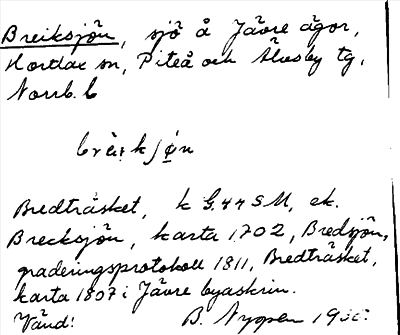 Breiksjön, sjö å Jävre ägor,
Hortlax sn, Piteå och Älvsby tg,
Norrb. l
Bredträsket, k G.44 S M, ek.
Brecksjön, karta 1702, Bredsjön,
graderingsprotokoll 1811, Bredträsket,
karta 1857 i Jävre byaskrin.
Vänd! B. Nygren